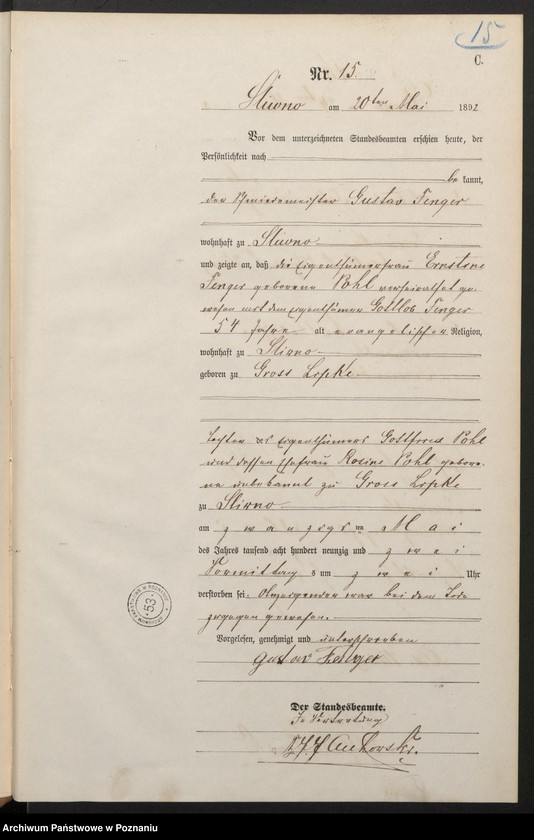 15
C.
Nr. 15.
Stiwno am 20ten Mai 1892
Vor dem unterzeichneten Standesbeamten erschien heute, der
Persönlichkeit nach
be kannt,
der Schmiedemeister Gustav Fenger
wohnhaft zu Stiwno
und zeigte an, daß die Eigenthümerfrau Ernstine
Fenger geborene Pohl verheirathet ge-
wesen mit dem Eigenthümer Gottlob Fenger
54 Jahre alt evangelischer Religion,
wohnhaft zu
geboren zu Gross Lipke
Tochter des Eigenthümers Gottfried Pohl
und dessen Ehefrau Rosine Pohl gebore-
ne unbekannt zu Gross Lipke
zu
am zwanzigsten Mai
des Jahres tausend acht hundert neunzig und zwei
Vormittags um zwei Uhr
verstorben sei. Anzeigender war bei dem Tode
zugegen gewesen.
Vorgelesen, genehmigt und unterschrieben
Gustav Fenger
Der Standesbeamte.
In Vertretung
53
Archiwum Państwowe w Poznaniu